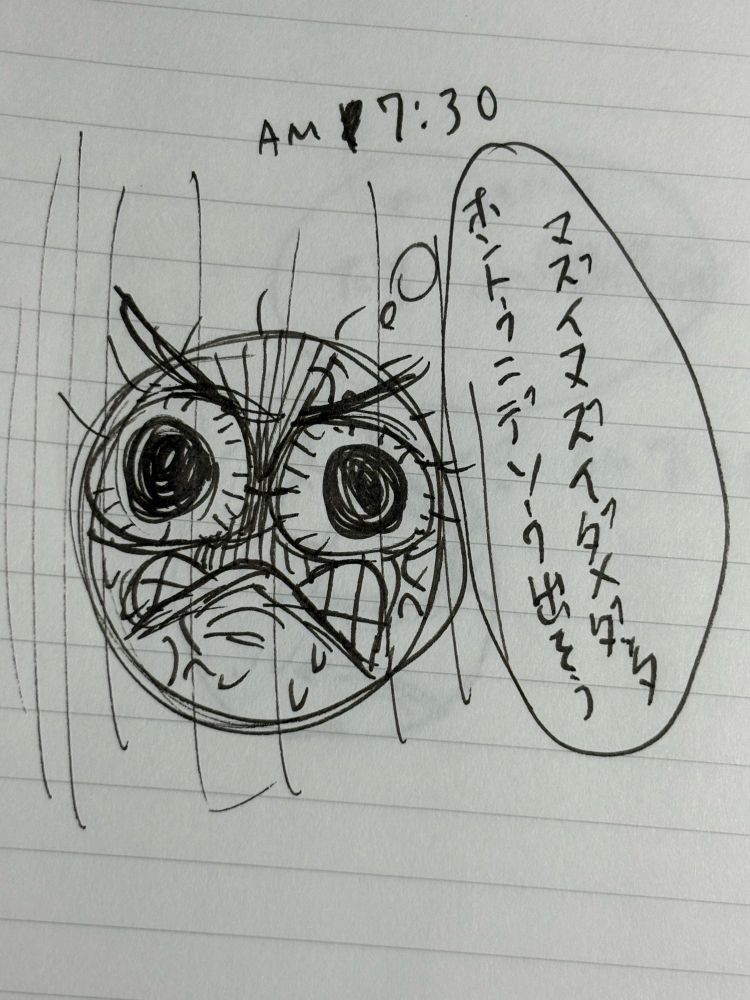 AM 7:30
マズイマズイダメダッタ
ホントウニデソーウ出そう